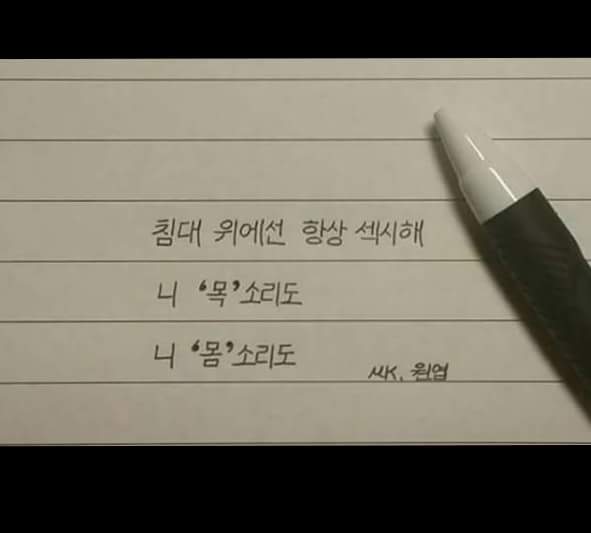 침대 위에선 항상 섹시해
니 ‘목’소리도
니 ‘몸’소리도
ㅆㅏ. 원엽